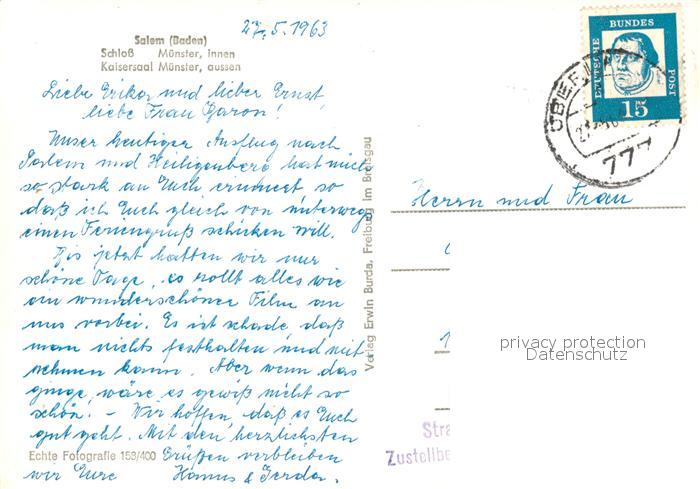 27.5.1963
Salem (Baden)
Schloß Münster, innen
Kaisersaal Münster, aussen
Liebe Erika und lieber Ernst,
liebe Frau Garon!
Unser heutiger Ausflug nach
Salem und Heiligenberg hat mich
so stark an Euch erinnert, so
daß ich Euch gleich von unterwegs
einen Feriengruß schicken will.
Bis jetzt hatten wir nur
schöne Tage, es rollt alles wie
ein wunderschöner Film an
uns vorbei. Es ist schade, daß
man nichts festhalten und mit
nehmen kann. Aber wenn das
ginge, wäre es gewiß nicht so
schön. - Wir hoffen, daß es Euch
gut geht. Mit den herzlichsten
Echte Fotografie 153/400 Grüßen verbleiben
wir Eure Hanns & Gerda.
Verlag Erwin Burda, Freiburg im Breisgau
DEUTSCHE
BUNDES
POST
15
777
Herrn und Frau
privacy protection
Datenschutz
Stra
Zustellbe